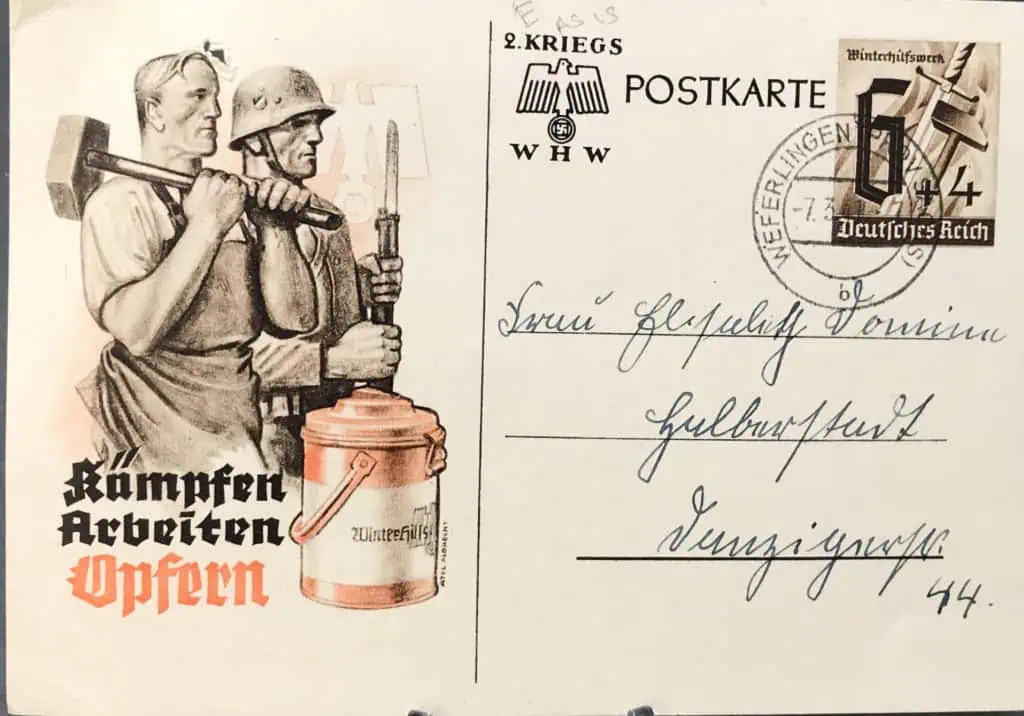 E
AS IS
2. KRIEGS
POSTKARTE
WHW
Winterhilfswerk
6+4
Deutsches Reich
WEFERLINGEN
-7.3
b
Frau Elisabeth Domine
Halberstadt
Danzigerstr.
44.
Kämpfen
Arbeiten
Opfern
Winterhilfs
ATEL. ALBRECHT